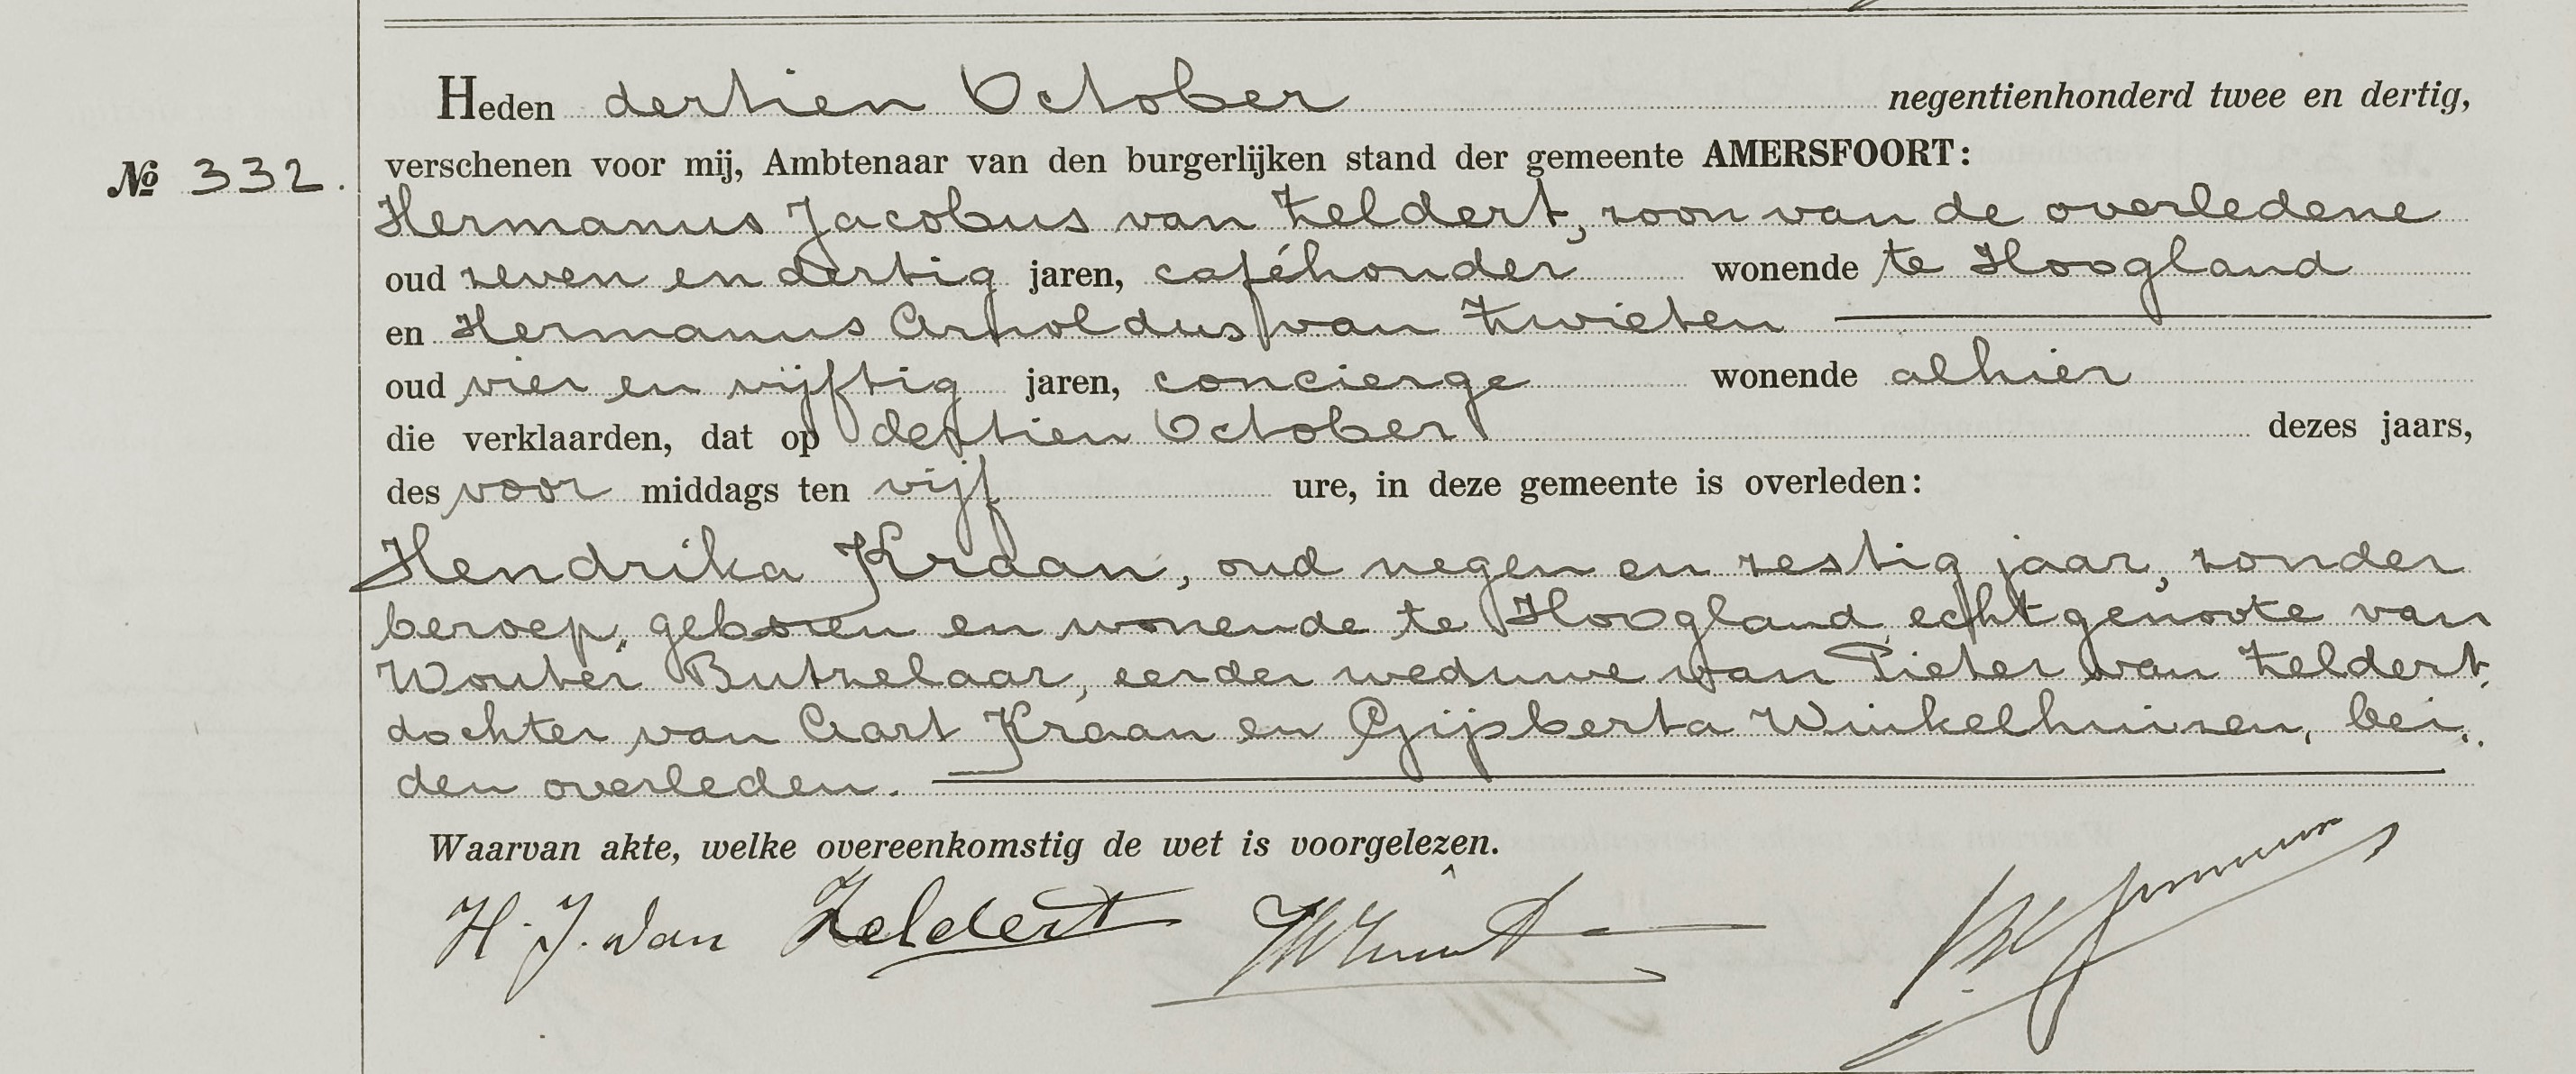 Heden dertien October negentienhonderd twee en dertig,
№ 332. verschenen voor mij, Ambtenaar van den burgerlijken stand der gemeente AMERSFOORT:
Hermanus Jacobus van Zeldert, zoon van de overledene
oud zeven en dertig jaren, caféhouder wonende te Hoogland
en Hermanus Arnoldus van Zwieten
oud vier en vijftig jaren, concierge wonende alhier
die verklaarden, dat op dertien October dezes jaars,
des voor middags ten vijf ure, in deze gemeente is overleden:
Hendrika Kraan, oud negen en zestig jaar, zonder
beroep, geboren en wonende te Hoogland, echtgenoote van
Wouter Butzelaar, eerder weduwe van Pieter van Zeldert,
dochter van Aart Kraan en Gijsberta Winkelhuizen, bei„
den overleden.
Waarvan akte, welke overeenkomstig de wet is voorgelezen.
H. J. van Zeldert